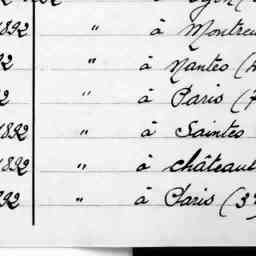 1892 " à Montreu
92 " à Nantes (
2 " à Paris (7
1892 " à Saintes
1892 " à Château
892 " à Paris (3